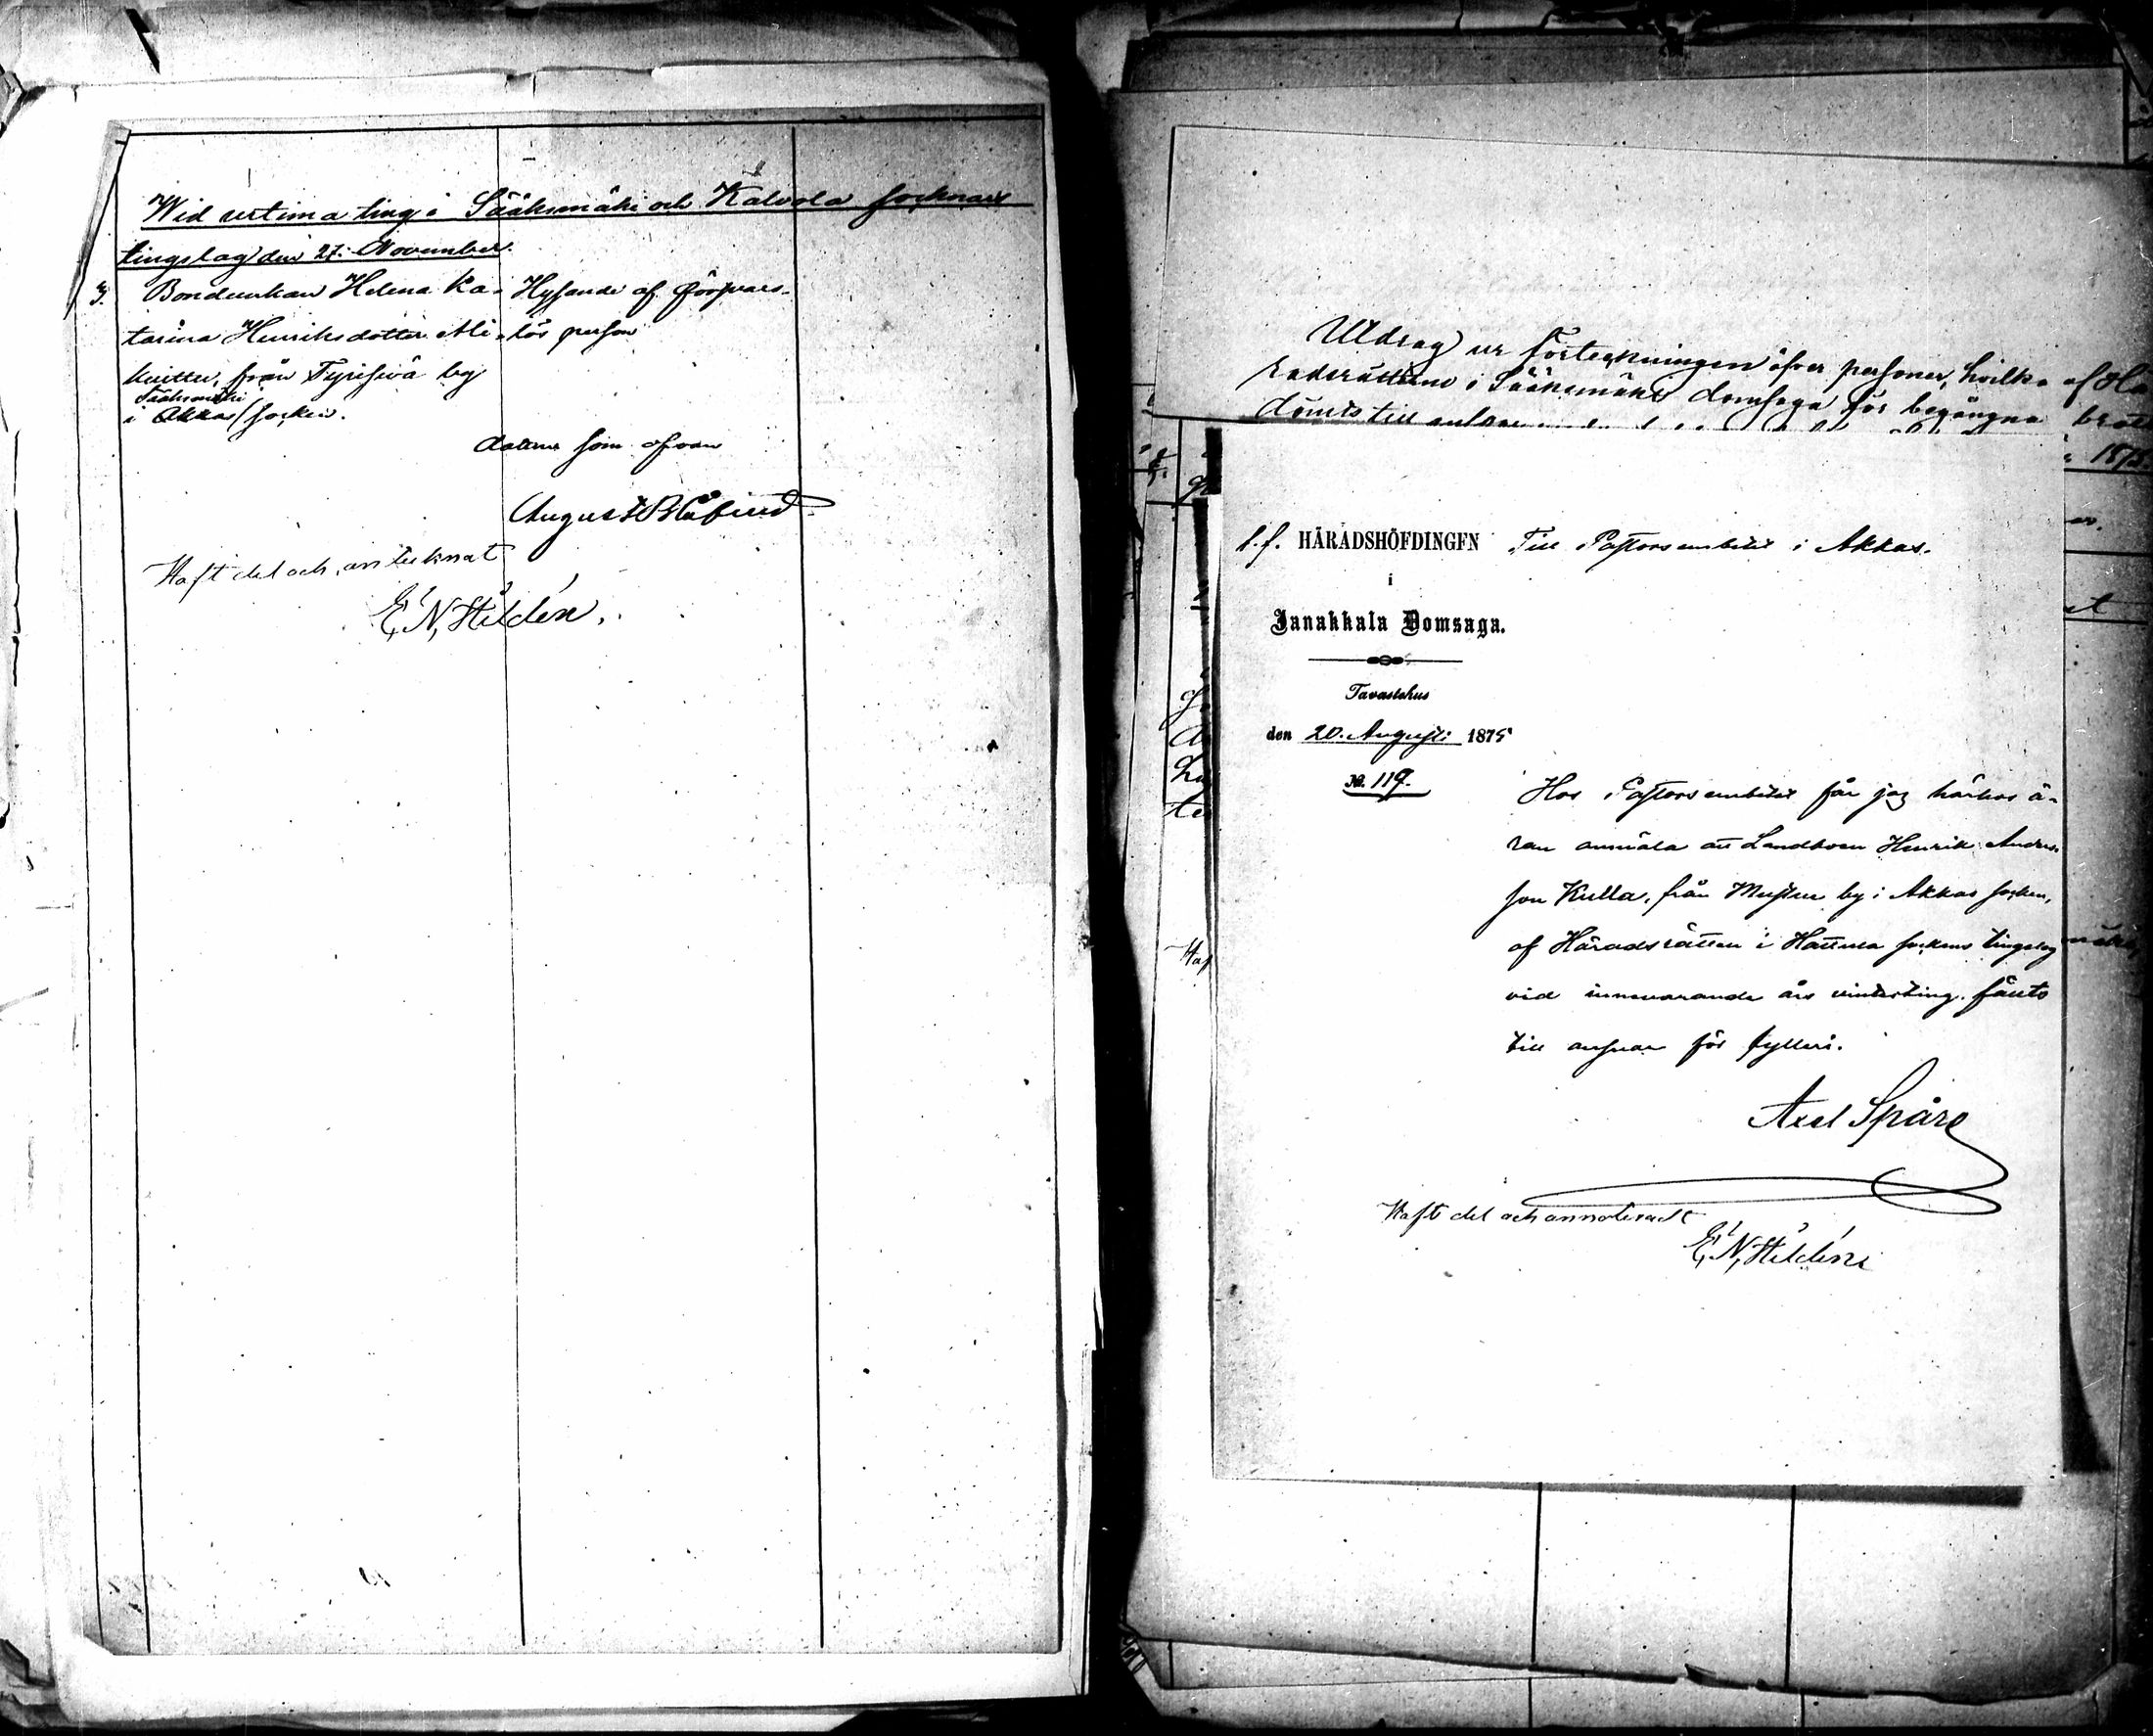 Wid urtima ting i Sääksmäki och Kalvola socknars
tingslag den 27. November.
3. Bondeenkan Helena Ka- Hysande af försvars-
tarina Henriksdotter Ali- lös person
knittu, från Tyrisevä by
Sääksmäki
i Akkas socken.
Datum som ofvan
August Blåfield
Haft del och antecknat
E. N. Hildén.
Utdrag ur förteckningen öfver personer, hvilka af Hä
radsrätterne i Sääksmäki domsaga för begångna brott
dömts till
i 1875
t.f. HÄRADSHÖFDINGEN Till Pastorsembetet i Akkas.
i
Janakkala Domsaga.
Tavastehus
den 20. Augusti 1875
No. 119.
Hos Pastorsembetet får jag härhos ä-
ran anmäla att Landboen Henrik Anders-
son Kulla, från Mustue by i Akkas socken,
af Häradsrätten i Hattula sockens tingslag
vid innevarande års vinterting fälts
till ansvar för fylleri.
Axel Spåre
Haft del och annoteradt
E. N. Hildén